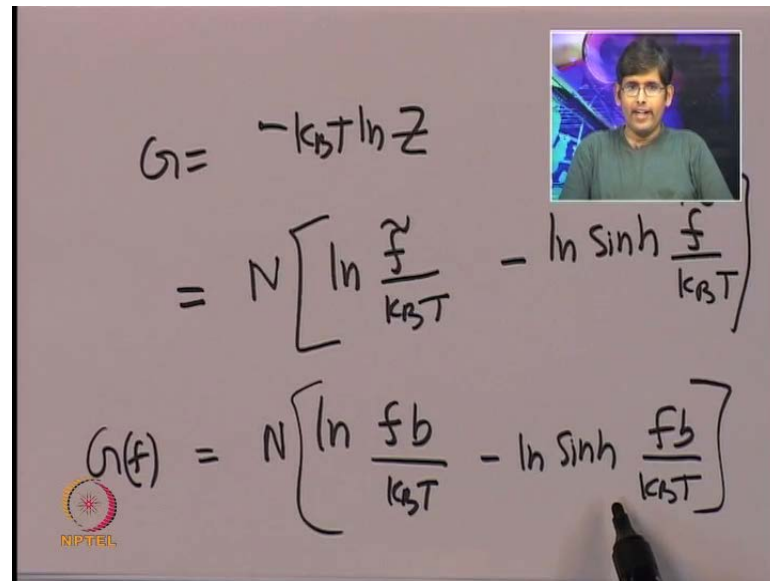 G = -k_BT ln Z
= N[ ln f̃/k_BT - ln sinh f̃/k_BT ]
G(f) = N[ ln fb/k_BT - ln sinh fb/k_BT ]
NPTEL